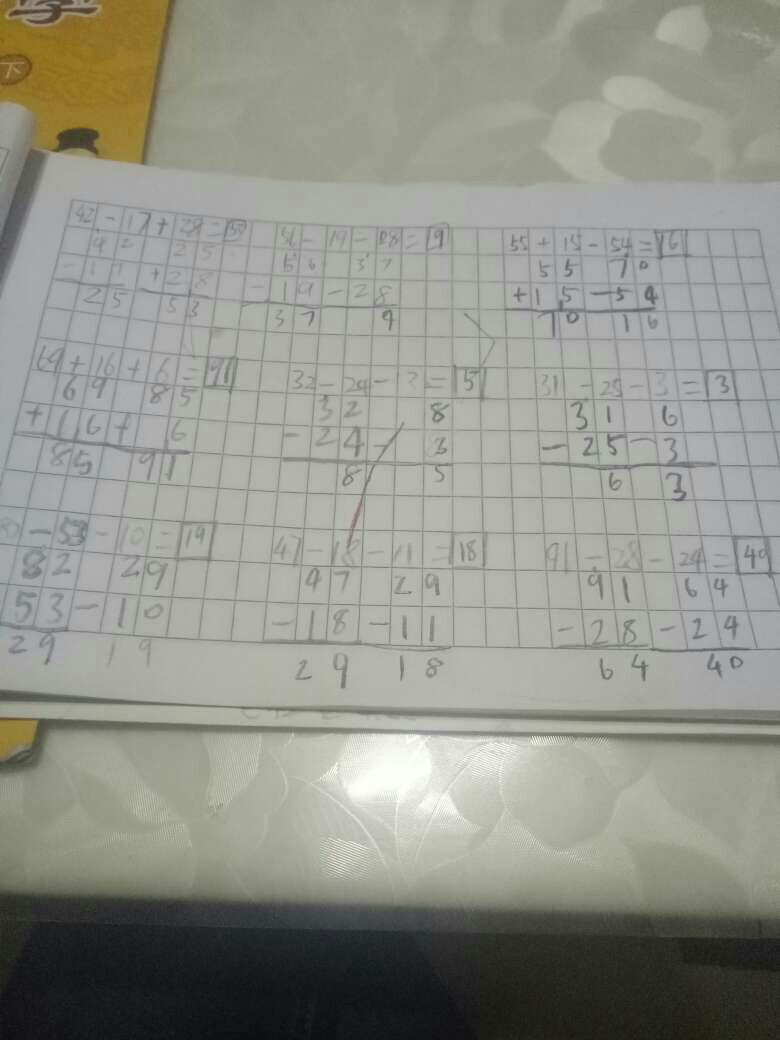 下
42-17+28=53
42 25
-17 +28
25 53
56-19-28=9
56 37
-19-28
37 9
55+15-54=16
55 70
+15-54
70 16
69+16+6=91
69 85
+16+ 6
85 91
32-24-3=5
32 8
-24- 3
8 5
31-25-3=3
31 6
-25-3
6 3
-53-10=19
82 29
53-10
29 19
47-18-11=18
47 29
-18-11
29 18
91-28-24=40
91 64
-28-24
64 40